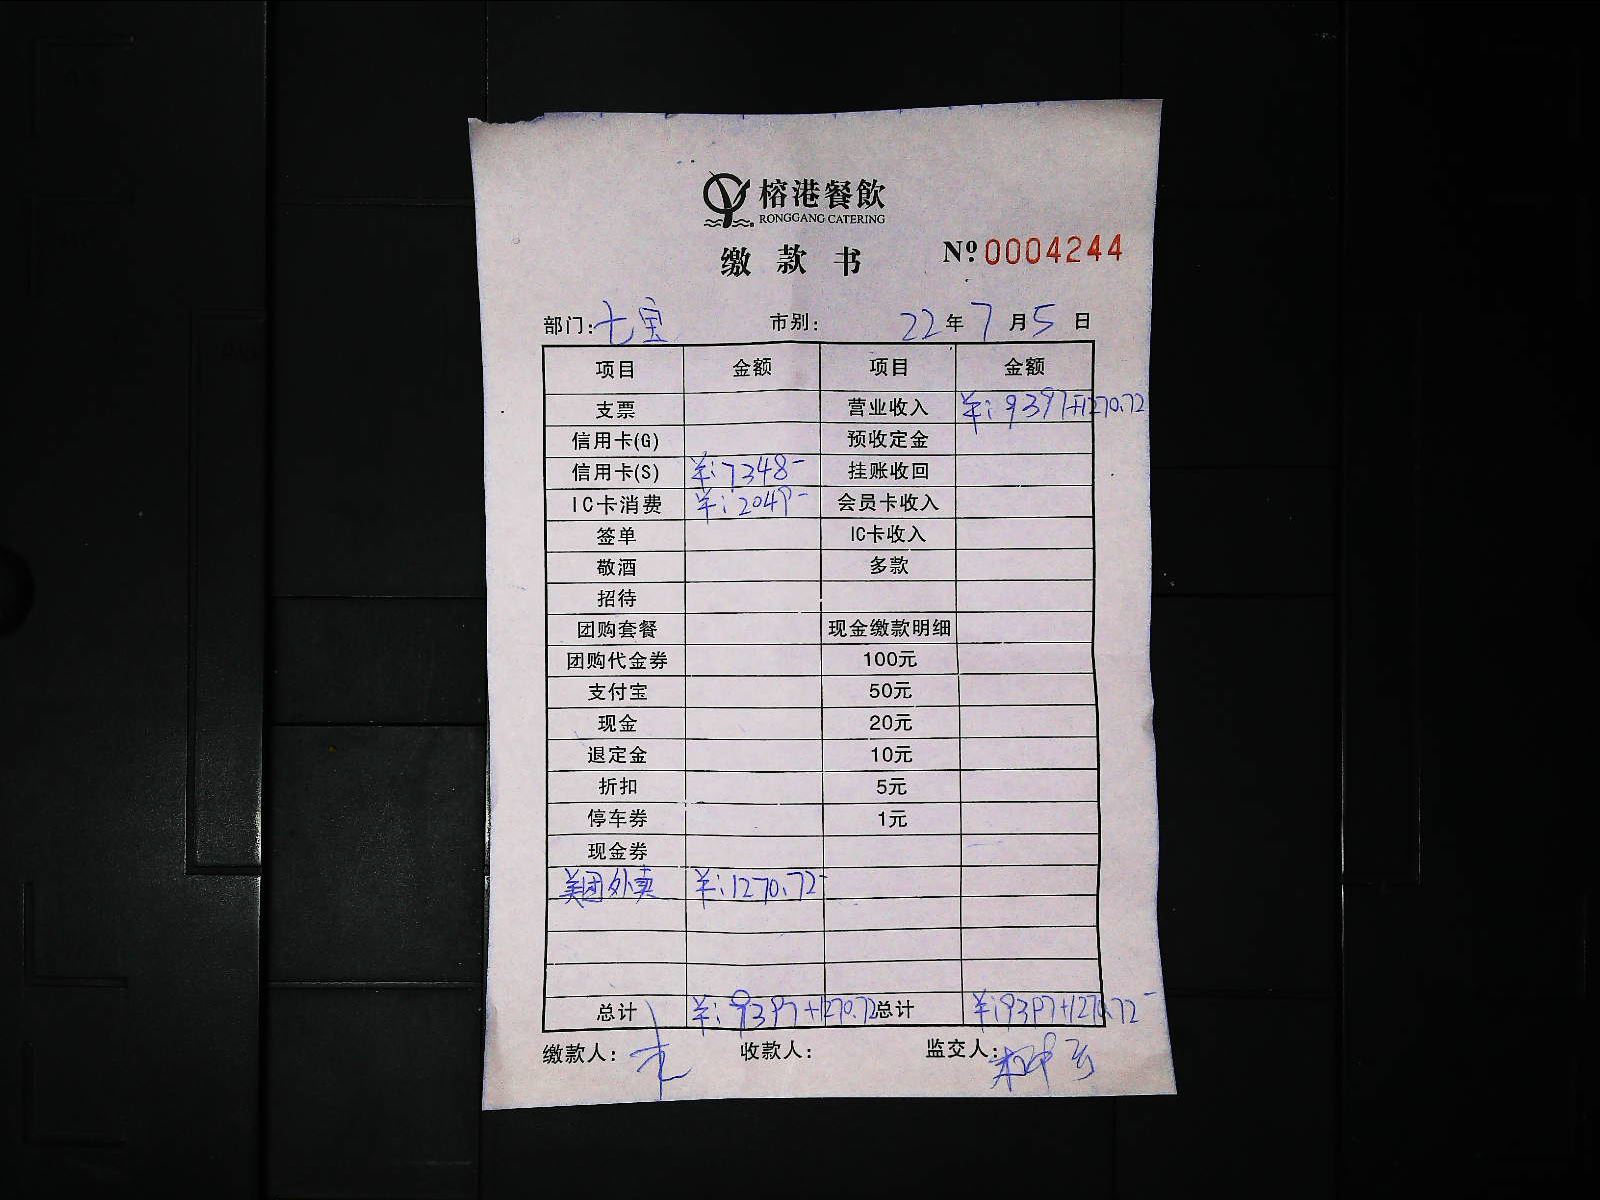 榕港餐飲
RONGGANG CATERING
缴款书
№ 0004244
部门: 七宝 市别: 22年7月5日
项目 金额 项目 金额
支票 营业收入 ¥:9397+1270.72
信用卡(G) 预收定金
信用卡(S) ¥:7348- 挂账收回
IC卡消费 ¥:2049- 会员卡收入
签单 IC卡收入
敬酒 多款
招待
团购套餐 现金缴款明细
团购代金券 100元
支付宝 50元
现金 20元
退定金 10元
折扣 5元
停车券 1元
现金券
美团外卖 ¥:1270.72-
总计 ¥:9397+1270.72 总计 ¥:9397+1270.72-
缴款人: 收款人: 监交人: